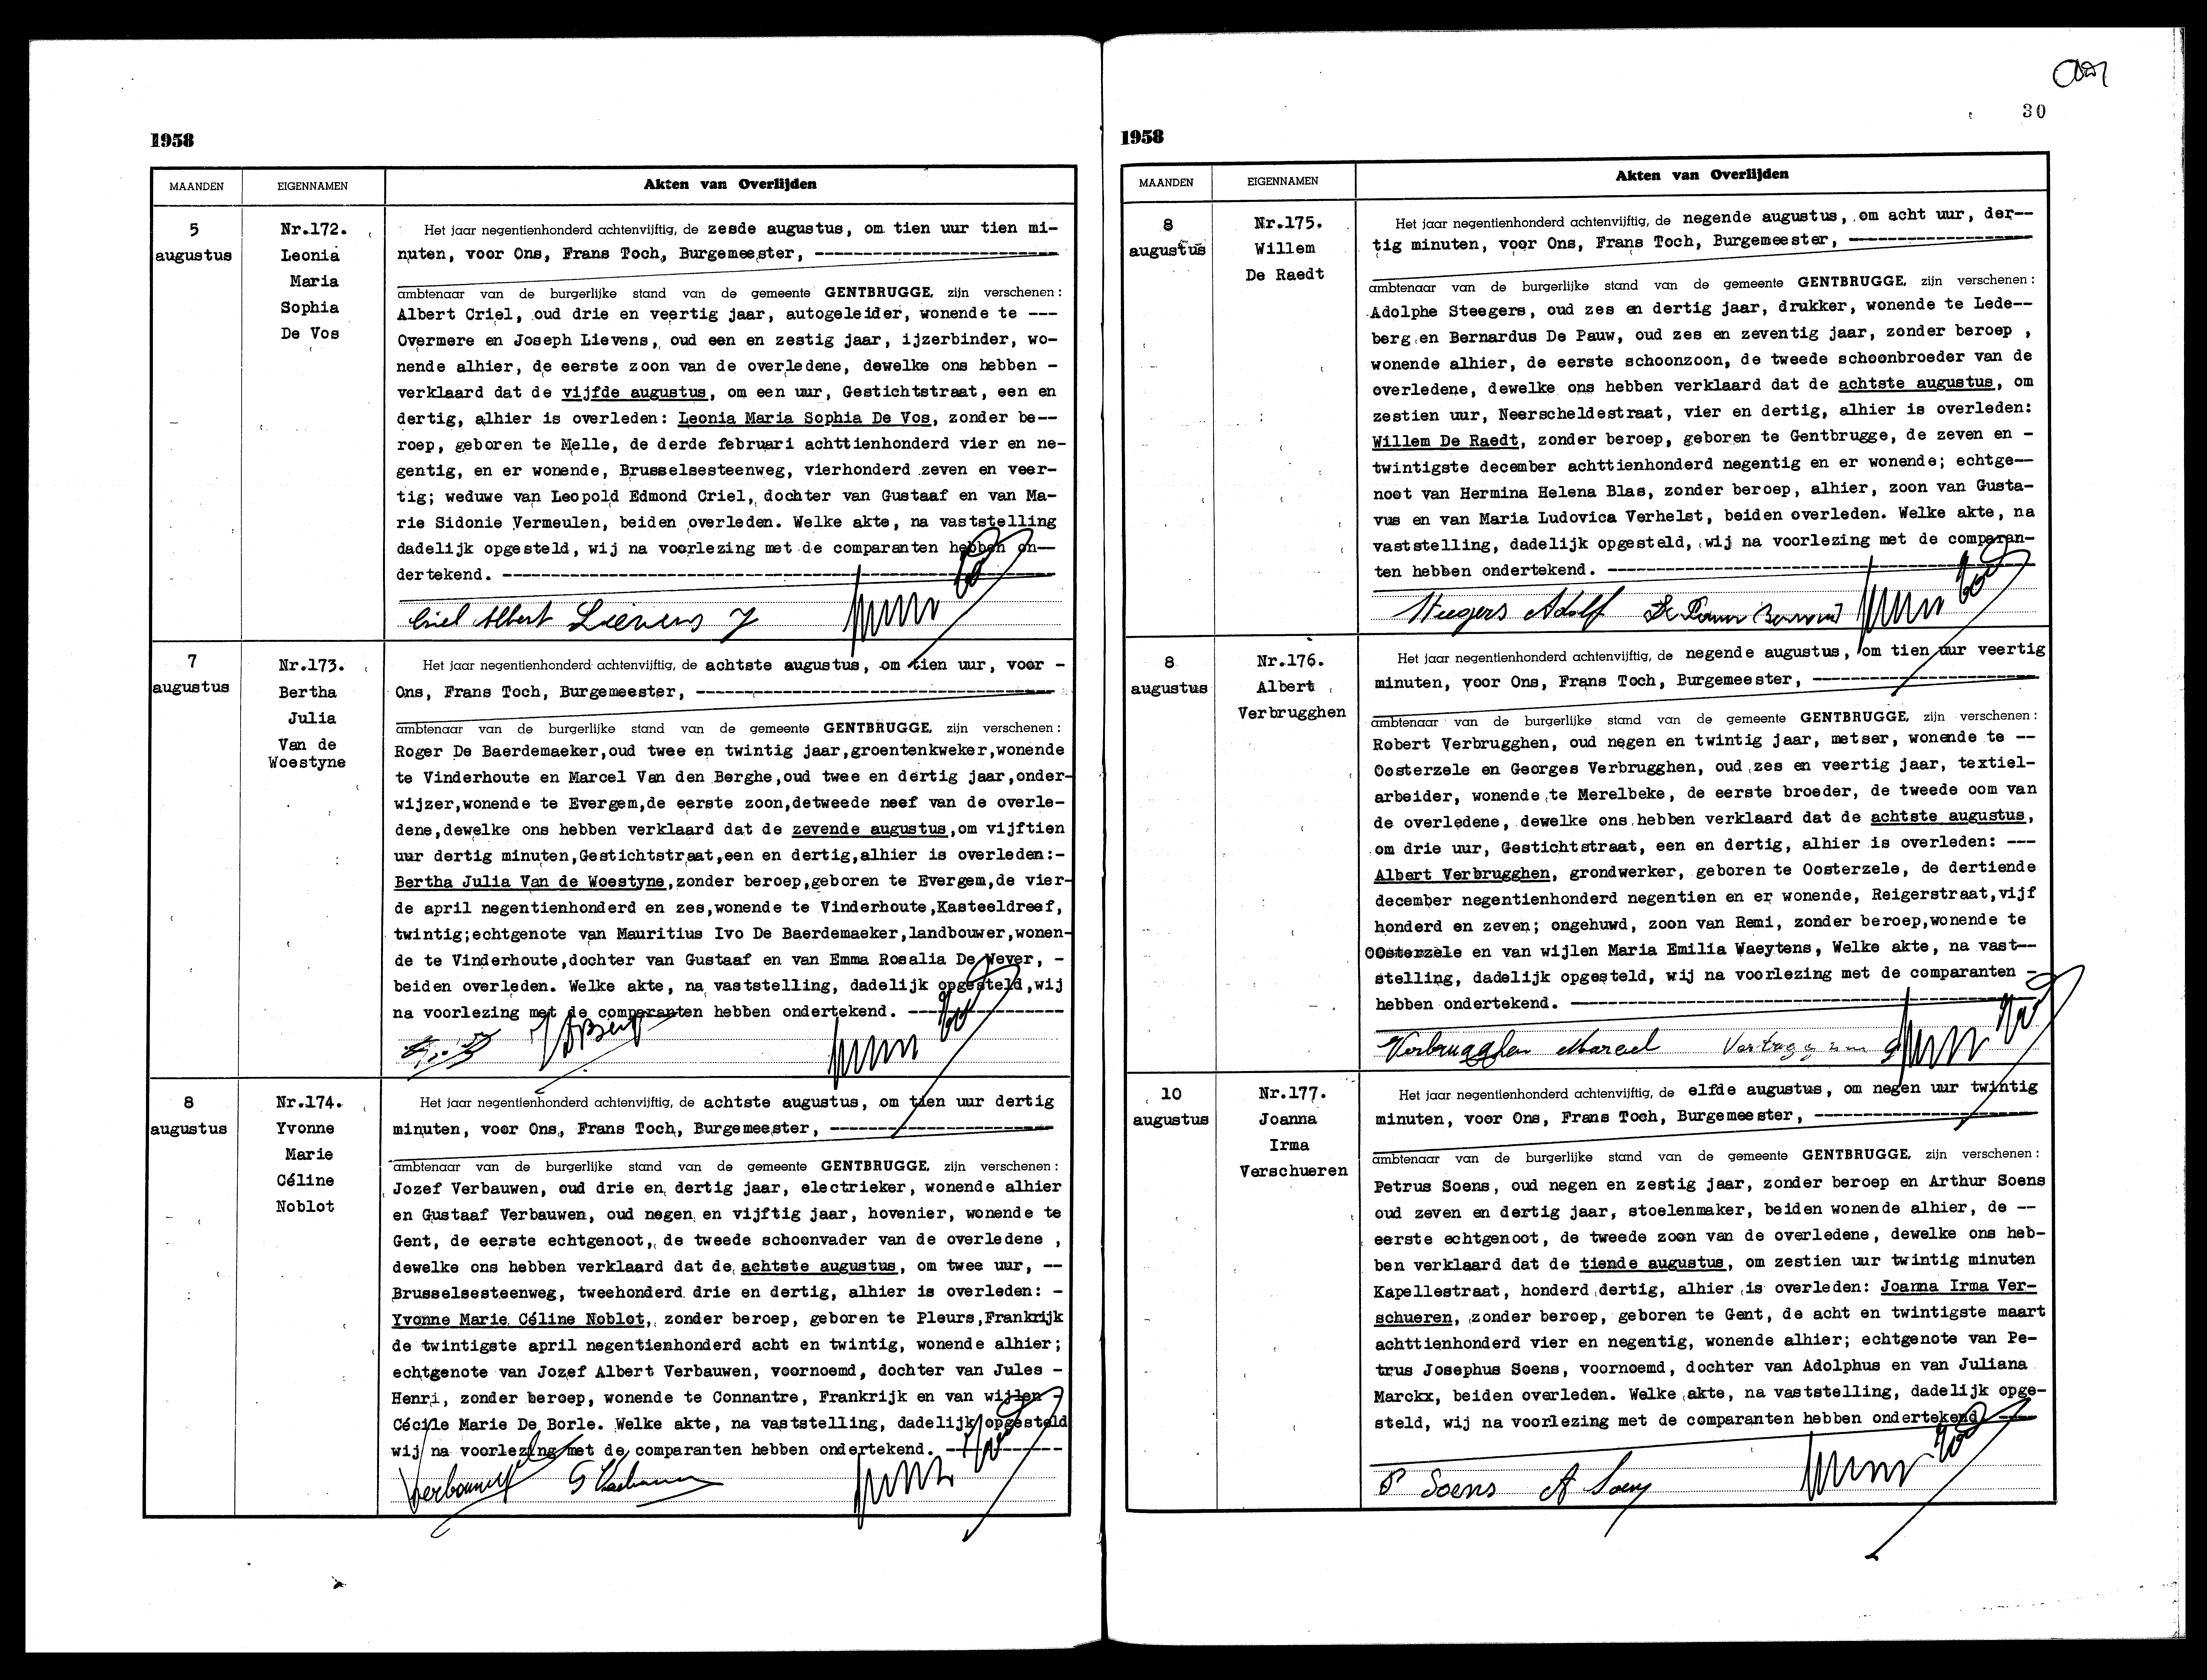 30
1958
MAANDEN
EIGENNAMEN
Akten van Overlijden
5
augustus
Nr.172.
Leonia
Maria
Sophia
De Vos
Het jaar negentienhonderd achtenvijftig, de zesde augustus, om tien uur tien mi-
nuten, voor Ons, Frans Toch, Burgemeester, ----------
ambtenaar van de burgerlijke stand van de gemeente GENTBRUGGE, zijn verschenen :
Albert Criel, oud drie en veertig jaar, autogeleider, wonende te ---
Overmere en Joseph Lievens, oud een en zestig jaar, ijzerbinder, wo-
nende alhier, de eerste zoon van de overledene, dewelke ons hebben -
verklaard dat de vijfde augustus, om een uur, Gestichtstraat, een en
dertig, alhier is overleden: Leonia Maria Sophia De Vos, zonder be--
roep, geboren te Melle, de derde februari achttienhonderd vier en ne-
gentig, en er wonende, Brusselsesteenweg, vierhonderd zeven en veer-
tig; weduwe van Leopold Edmond Criel, dochter van Gustaaf en van Ma-
rie Sidonie Vermeulen, beiden overleden. Welke akte, na vaststelling
dadelijk opgesteld, wij na voorlezing met de comparanten hebben on--
dertekend. ----------
Criel Albert Lievens J
7
augustus
Nr.173.
Bertha
Julia
Van de
Woestyne
Het jaar negentienhonderd achtenvijftig, de achtste augustus, om tien uur, voor -
Ons, Frans Toch, Burgemeester, ----------
ambtenaar van de burgerlijke stand van de gemeente GENTBRUGGE, zijn verschenen :
Roger De Baerdemaeker,oud twee en twintig jaar,groentenkweker,wonende
te Vinderhoute en Marcel Van den Berghe,oud twee en dertig jaar,onder-
wijzer,wonende te Evergem,de eerste zoon,detweede neef van de overle-
dene,dewelke ons hebben verklaard dat de zevende augustus,om vijftien
uur dertig minuten,Gestichtstraat,een en dertig,alhier is overleden:-
Bertha Julia Van de Woestyne,zonder beroep,geboren te Evergem,de vier-
de april negentienhonderd en zes,wonende te Vinderhoute,Kasteeldreef,
twintig;echtgenote van Mauritius Ivo De Baerdemaeker,landbouwer,wonen-
de te Vinderhoute,dochter van Gustaaf en van Emma Rosalia De Wever, -
beiden overleden. Welke akte, na vaststelling, dadelijk opgesteld,wij
na voorlezing met de comparanten hebben ondertekend. ----------
8
augustus
Nr.174.
Yvonne
Marie
Céline
Noblot
Het jaar negentienhonderd achtenvijftig, de achtste augustus, om tien uur dertig
minuten, voor Ons, Frans Toch, Burgemeester, ----------
ambtenaar van de burgerlijke stand van de gemeente GENTBRUGGE, zijn verschenen :
Jozef Verbauwen, oud drie en dertig jaar, electrieker, wonende alhier
en Gustaaf Verbauwen, oud negen en vijftig jaar, hovenier, wonende te
Gent, de eerste echtgenoot, de tweede schoonvader van de overledene ,
dewelke ons hebben verklaard dat de achtste augustus, om twee uur, --
Brusselsesteenweg, tweehonderd drie en dertig, alhier is overleden: -
Yvonne Marie Céline Noblot, zonder beroep, geboren te Pleurs,Frankrijk
de twintigste april negentienhonderd acht en twintig, wonende alhier;
echtgenote van Jozef Albert Verbauwen, voornoemd, dochter van Jules -
Henri, zonder beroep, wonende te Connantre, Frankrijk en van wijlen -
Cécile Marie De Borle. Welke akte, na vaststelling, dadelijk opgesteld
wij na voorlezing met de comparanten hebben ondertekend. ----------
1958
MAANDEN
EIGENNAMEN
Akten van Overlijden
8
augustus
Nr.175.
Willem
De Raedt
Het jaar negentienhonderd achtenvijftig, de negende augustus, om acht uur, der--
tig minuten, voor Ons, Frans Toch, Burgemeester, ----------
ambtenaar van de burgerlijke stand van de gemeente GENTBRUGGE, zijn verschenen :
Adolphe Steegers, oud zes en dertig jaar, drukker, wonende te Lede--
berg en Bernardus De Pauw, oud zes en zeventig jaar, zonder beroep ,
wonende alhier, de eerste schoonzoon, de tweede schoonbroeder van de
overledene, dewelke ons hebben verklaard dat de achtste augustus, om
zestien uur, Neerscheldestraat, vier en dertig, alhier is overleden:
Willem De Raedt, zonder beroep, geboren te Gentbrugge, de zeven en -
twintigste december achttienhonderd negentig en er wonende; echtge--
noot van Hermina Helena Blas, zonder beroep, alhier, zoon van Gusta-
vus en van Maria Ludovica Verhelst, beiden overleden. Welke akte, na
vaststelling, dadelijk opgesteld, wij na voorlezing met de comparan-
ten hebben ondertekend. ----------
Steegers Adolf De Pauw
8
augustus
Nr.176.
Albert
Verbrugghen
Het jaar negentienhonderd achtenvijftig, de negende augustus, om tien uur veertig
minuten, voor Ons, Frans Toch, Burgemeester, ----------
ambtenaar van de burgerlijke stand van de gemeente GENTBRUGGE, zijn verschenen :
Robert Verbrugghen, oud negen en twintig jaar, metser, wonende te --
Oosterzele en Georges Verbrugghen, oud zes en veertig jaar, textiel-
arbeider, wonende te Merelbeke, de eerste broeder, de tweede oom van
de overledene, dewelke ons hebben verklaard dat de achtste augustus,
om drie uur, Gestichtstraat, een en dertig, alhier is overleden: ---
Albert Verbrugghen, grondwerker, geboren te Oosterzele, de dertiende
december negentienhonderd negentien en er wonende, Reigerstraat,vijf
honderd en zeven; ongehuwd, zoon van Remi, zonder beroep,wonende te
Oosterzele en van wijlen Maria Emilia Waeytens, Welke akte, na vast--
stelling, dadelijk opgesteld, wij na voorlezing met de comparanten -
hebben ondertekend. ----------
Verbrugghen Marcel
10
augustus
Nr.177.
Joanna
Irma
Verschueren
Het jaar negentienhonderd achtenvijftig, de elfde augustus, om negen uur twintig
minuten, voor Ons, Frans Toch, Burgemeester, ----------
ambtenaar van de burgerlijke stand van de gemeente GENTBRUGGE, zijn verschenen :
Petrus Soens, oud negen en zestig jaar, zonder beroep en Arthur Soens
oud zeven en dertig jaar, stoelenmaker, beiden wonende alhier, de --
eerste echtgenoot, de tweede zoon van de overledene, dewelke ons heb-
ben verklaard dat de tiende augustus, om zestien uur twintig minuten
Kapellestraat, honderd dertig, alhier is overleden: Joanna Irma Ver-
schueren, zonder beroep, geboren te Gent, de acht en twintigste maart
achttienhonderd vier en negentig, wonende alhier; echtgenote van Pe-
trus Josephus Soens, voornoemd, dochter van Adolphus en van Juliana
Marckx, beiden overleden. Welke akte, na vaststelling, dadelijk opge-
steld, wij na voorlezing met de comparanten hebben ondertekend. ---
P Soens A Soens